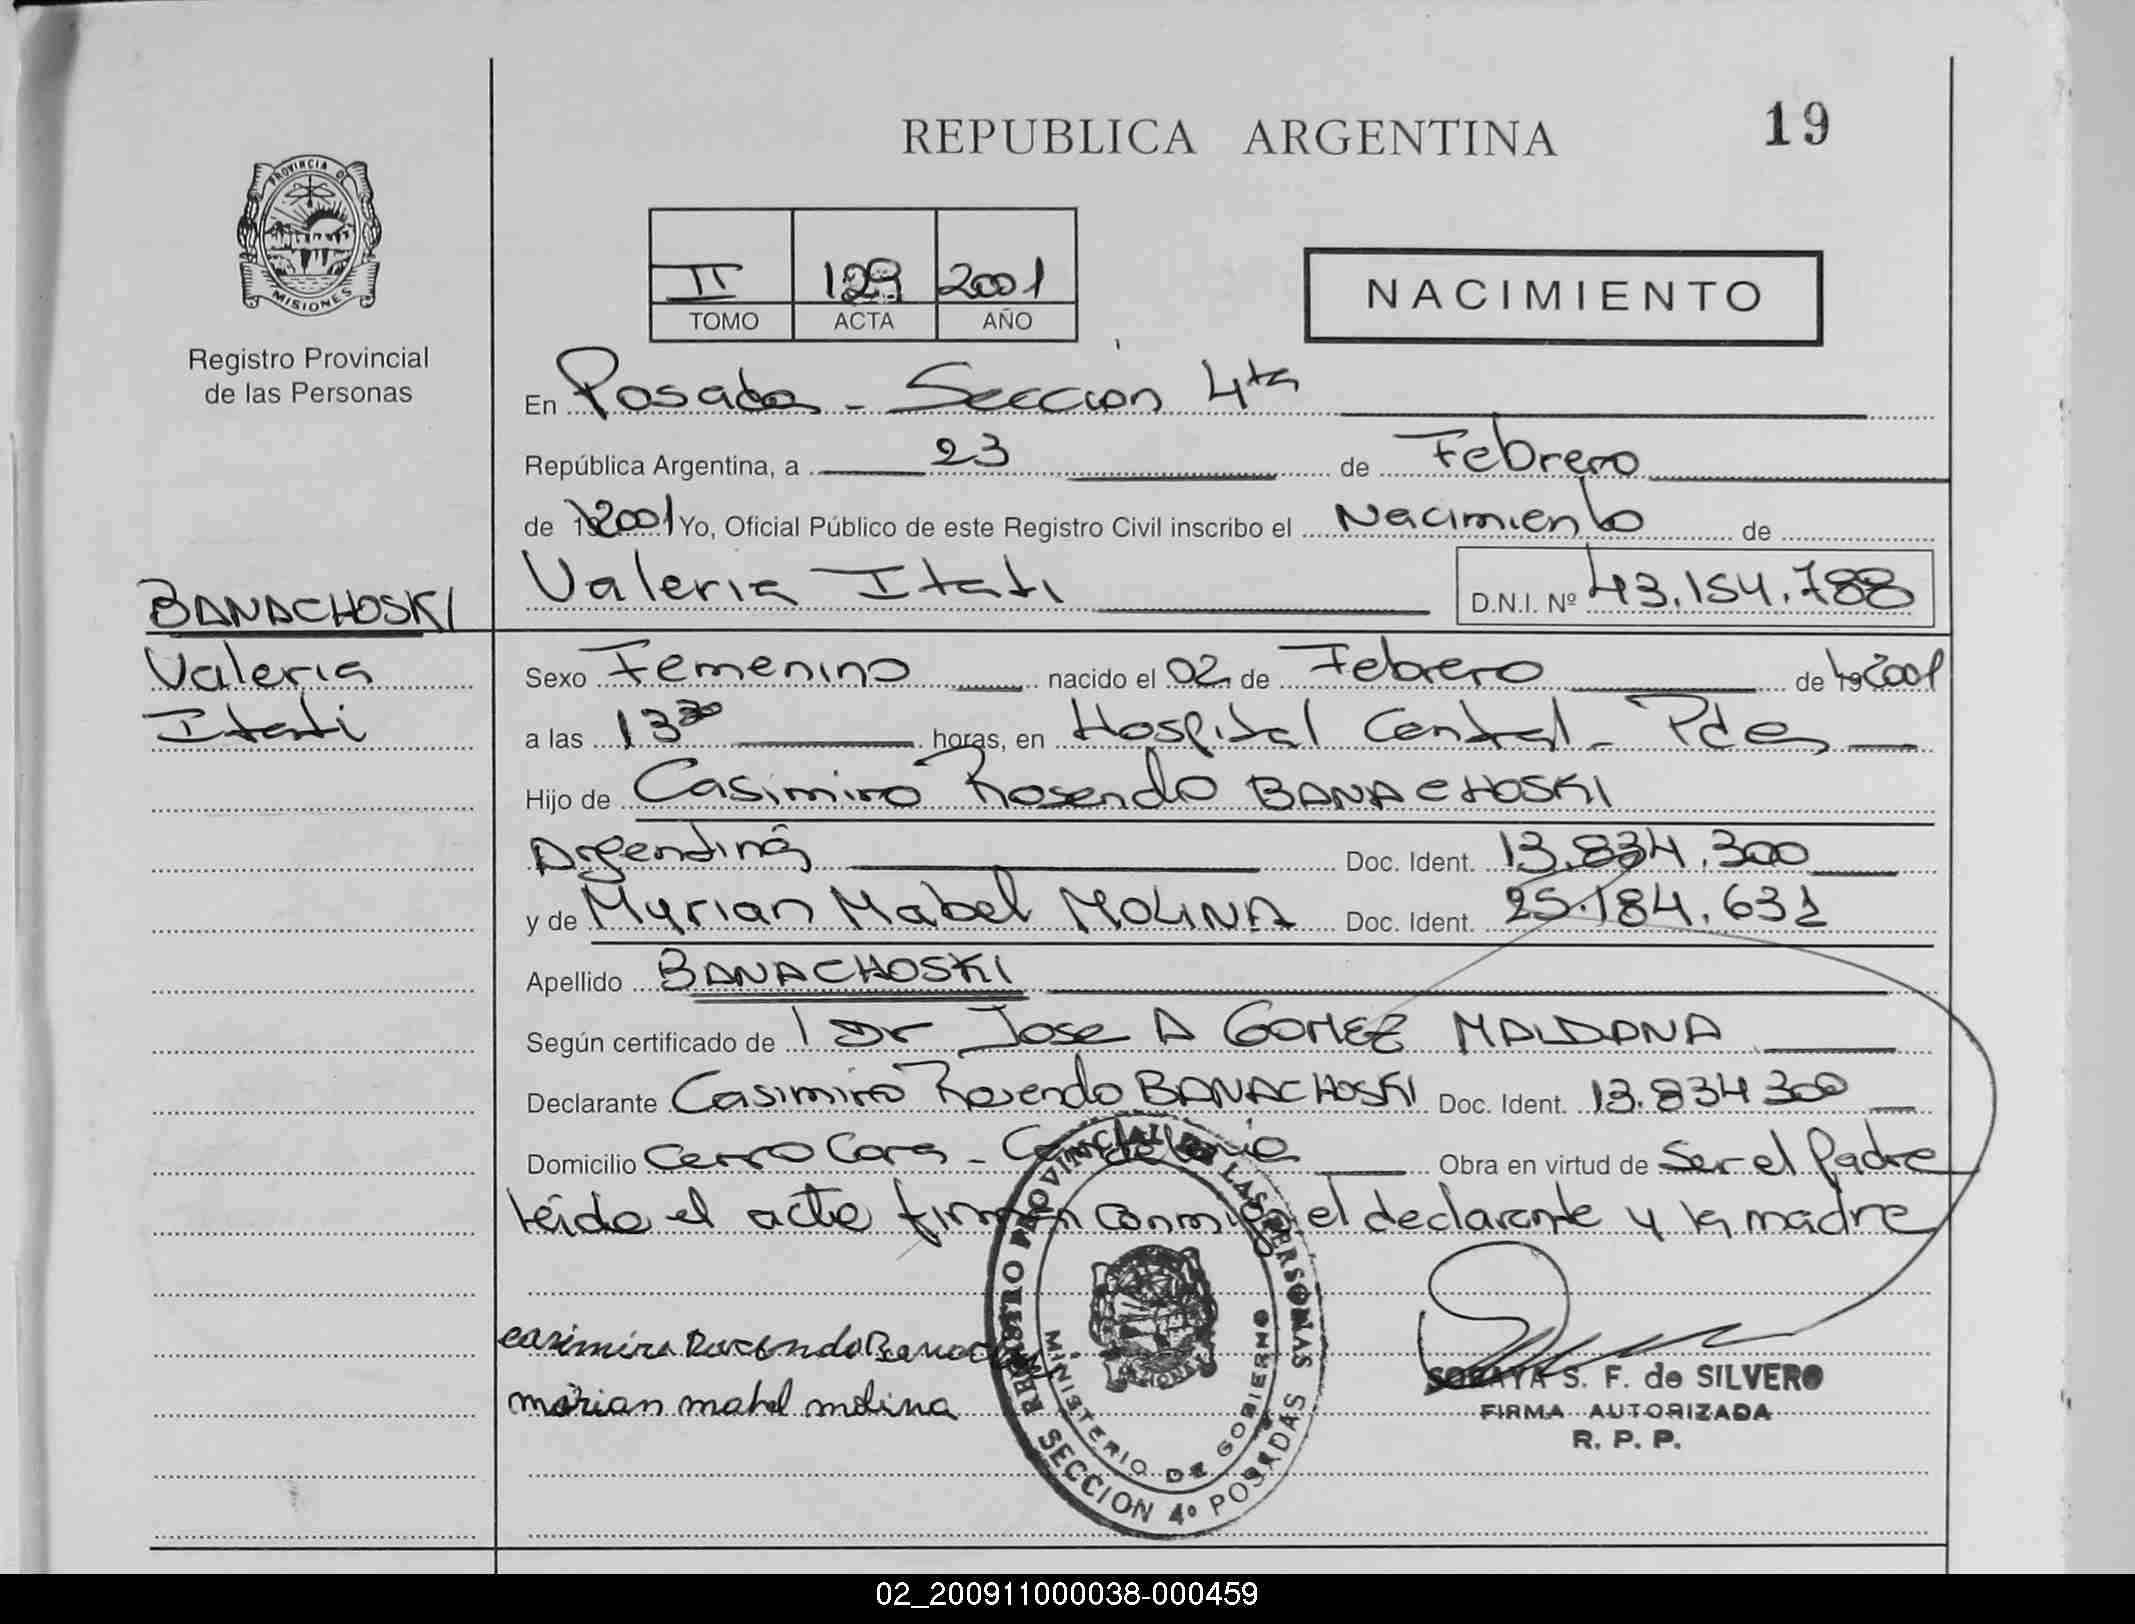 REPUBLICA ARGENTINA
19
PROVINCIA DE
MISIONES
Registro Provincial
de las Personas
II 129 2001
TOMO ACTA AÑO
NACIMIENTO
En Posadas - Sección 4ta
República Argentina, a 23 de Febrero
de 192001 Yo, Oficial Público de este Registro Civil inscribo el Nacimiento de
Valeria Itati D.N.I. Nº 43.154.788
BANACHOSKI
Valeria
Itati
Sexo Femenino nacido el 02 de Febrero de 192001
a las 13 30 horas, en Hospital Central - Pdas
Hijo de Casimiro Rosendo BANACHOSKI
Argentinos Doc. Ident. 13.834.300
y de Myrian Mabel MOLINA Doc. Ident. 25.184.631
Apellido BANACHOSKI
Según certificado de Dr Jose A GOMEZ MALDANA
Declarante Casimiro Rosendo BANACHOSKI Doc. Ident. 13.834 300
Domicilio Cerro Cora - Candelaria Obra en virtud de Ser el Padre
Leida el acta firman conmigo el declarante y la madre
casimiro Rosendo
marian mabel molina
REGISTRO PROVINCIAL DE LAS PERSONAS
MINISTERIO DE GOBIERNO
SECCION 4º POSADAS
SORAYA S. F. de SILVERO
FIRMA AUTORIZADA
R. P. P.
02_200911000038-000459